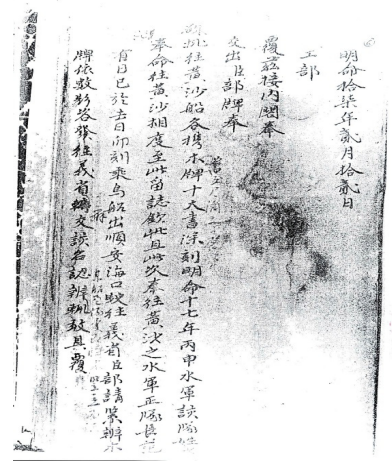 明命拾柒年貳月拾貳日
工部
覆茲接內閣奉
交出臣部牌奉
批往黃沙船各攜木牌十大書深刻明命十七年丙申水軍該隊姓
奉命往黃沙相度至此留誌欽此且此次奉往黃沙之水軍正隊長范
日已於去日卯刻乘烏船出順安海口駛往義省臣部請策辦木
牌依數各發往義省轉交該名認辦輒敢具覆